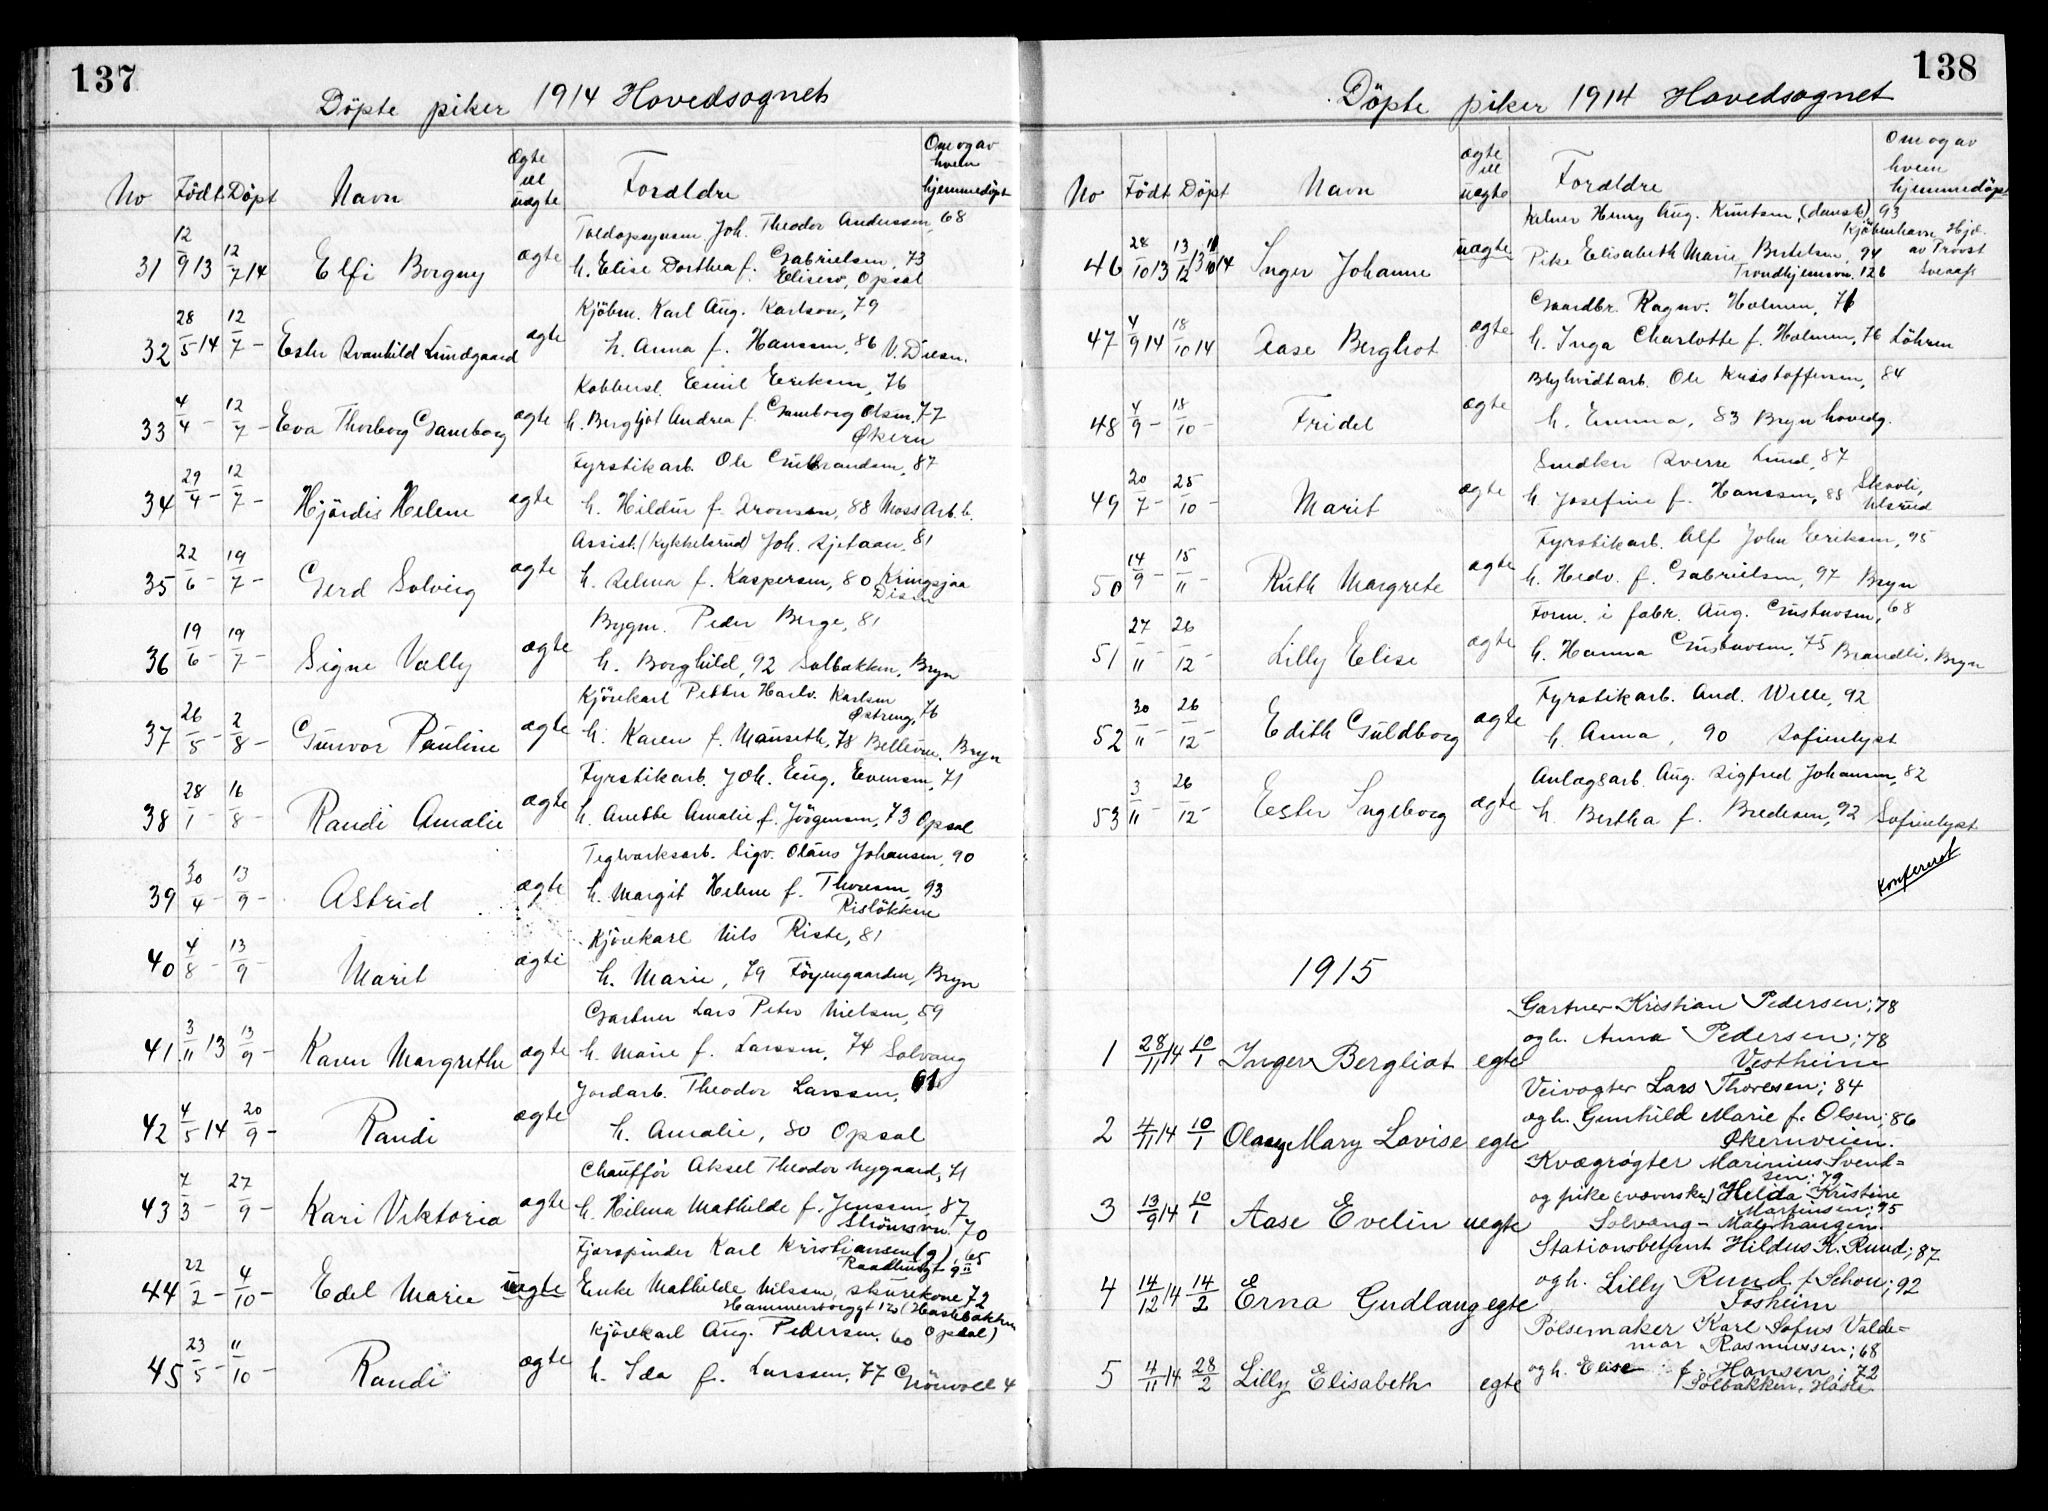 137
Döpte piker 1914 Hovedsognet
No Født Döpt Navn Ægte ell uægte Forældre Om og av hvem hjemmedöpt
Toldopsynsm Joh. Theodor Anderssen, 68
31 12/9 13 12/7 14 Elfi Borgny ægte h. Elise Dorthea f. Gabrielsen, 73
Elisero, Opsal
Kjöbm. Karl Aug. Karlson, 79
32 28/5 14 12/7 - Ester Svanhild Lundgaard ægte h. Anna f. Hanssen, 86 V. Disen.
Kobbersl. Emil Eriksen, 76
33 4/4 - 12/7 - Eva Thorborg Gamborg ægte h. Bergljot Andrea f. Gamborg Olsen, 77
Økern
Fyrstikarb. Ole Gulbrandsen, 87
34 29/4 - 12/7 - Hjördis Helene ægte h. Hildur f. Aronsen, 88 Moss Arb. b.
Assist. (Kykkelsrud) Joh. Sjetaan, 81
35 22/6 - 19/7 - Gerd Solveig ægte h. Selma f. Kaspersen, 80 Kringsjaa
Disen
Bygm. Peder Berge, 81
36 19/6 - 19/7 - Signe Vally ægte h. Borghild, 92 Solbakken, Bryn
Kjörekarl Petter Harlv. Karlsen
Østreng, 76
37 26/5 - 2/8 - Gunvor Pauline ægte h. Karen f. Mauseth, 78 Bellevue, Bryn
Fyrstikarb. Joh. Eug. Evensen, 71
38 28/1 - 16/8 - Randi Amalie ægte h. Anette Amalie f. Jörgensen, 73 Opsal
Teglverksarb. Sigv. Olaus Johansen, 90
39 30/4 - 13/9 - Astrid ægte h. Margit Helene f. Thoresen, 93
Rislökken
Kjörekarl Nils Riste, 81
40 4/8 - 13/9 - Marit ægte h. Marie, 79 Föyengaarden, Bryn
Gartner Lars Peter Nielsen, 59
41 3/11 13 13/9 - Karen Margrethe ægte h. Marie f. Larssen, 74 Solvang
Jordarb. Theodor Larssen, 61
42 4/5 14 20/9 - Randi ægte h. Amalie, 80 Opsal
Chauffør Aksel Theodor Nygaard, 71
43 7/3 - 27/9 - Kari Viktoria ægte h. Hilma Mathilde f. Jenssen, 87
Strömsvn. 70
Fjærspinder Karl Kristiansen (g), 65
Raadhusgt 9 II
44 22/2 - 4/10 - Edel Marie uægte Enke Mathilde Nilssen, skurekone, 72
Hammersborggt 12 (Haslebakken
Opsal)
Kjörekarl Aug. Pedersen, 60
45 23/5 - 11/10 - Randi ægte h. Ida f. Larssen, 77 Grönvold 4
138
Döpte piker 1914 Hovedsognet
No Født Döpt Navn ægte ell uægte Forældre Om og av hvem hjemmedöpt
Kelner Henry Aug. Knutsen, (dansk), 93
Kjöbenhavn
46 24/10 13 13/12 13 11/10 14 Inger Johanne uægte Pike Elisabeth Marie Bertelsen, 94 Hjd. av Provst Sveaas
Trondhjemsvn. 126
Gaardbr. Ragnv. Holmen, 71
47 4/9 14 18/10 14 Aase Berghot ægte h. Inga Charlotte f. Holmen, 76 Löhren
Blyhvidtarb. Ole Kristoffersen, 84
48 4/9 - 18/10 - Fridel ægte h. Emma, 83 Bryn hovedg.
Snedker Sverre Lund, 87
49 20/7 - 25/10 - Marit ægte h. Josefine f. Hanssen, 88 Skovli,
Ulsrud
Fyrstikarb. Alf John Eriksen, 95
50 14/9 - 15/11 - Ruth Margrete ægte h. Hedv. f. Gabrielsen, 97 Bryn
Form. i fabr. Aug. Gustavsen, 68
51 27/11 - 26/12 - Lilly Elise ægte h. Hanna Gustavsen, 75 Brandli, Bryn
Fyrstikarb. And. Welle, 92
52 30/11 - 26/12 - Edith Guldborg ægte h. Anna, 90 Sofienlyst
Anlægsarb. Aug. Sigfred Johansen, 82
53 3/11 - 26/12 - Ester Ingeborg ægte h. Bertha f. Bredesen, 92 Sofienlyst
Konferert
1915
Gartner Kristian Pedersen; 78
1 28/11 14 10/1 Inger Bergliot egte og h. Anna Pedersen; 78
Vestheim
Veivogter Lars Thoresen; 84
2 4/11 14 10/1 Olaug Mary Lovise egte og h. Gunhild Marie f. Olsen; 86
Økernveien.
Kvægrøgter Marinius Svend=
sen; 79
3 13/9 14 10/1 Aase Evelin uegte og pike (væverske) Hilda Kristine
Martinsen; 95
Solvang - Malerhaugen.
Stationsbetjent Hildus K. Ruud; 87
4 14/12 14 14/2 Erna Gudlaug egte og h. Lilly Ruud f. Schou; 92
Fosheim
Pølsemaker Karl Sofus Valde=
mar Rasmussen; 68
5 4/11 14 28/2 Lilly Elisabeth egte og h. Elise f. Hansen; 72
Solbakken, Hasle